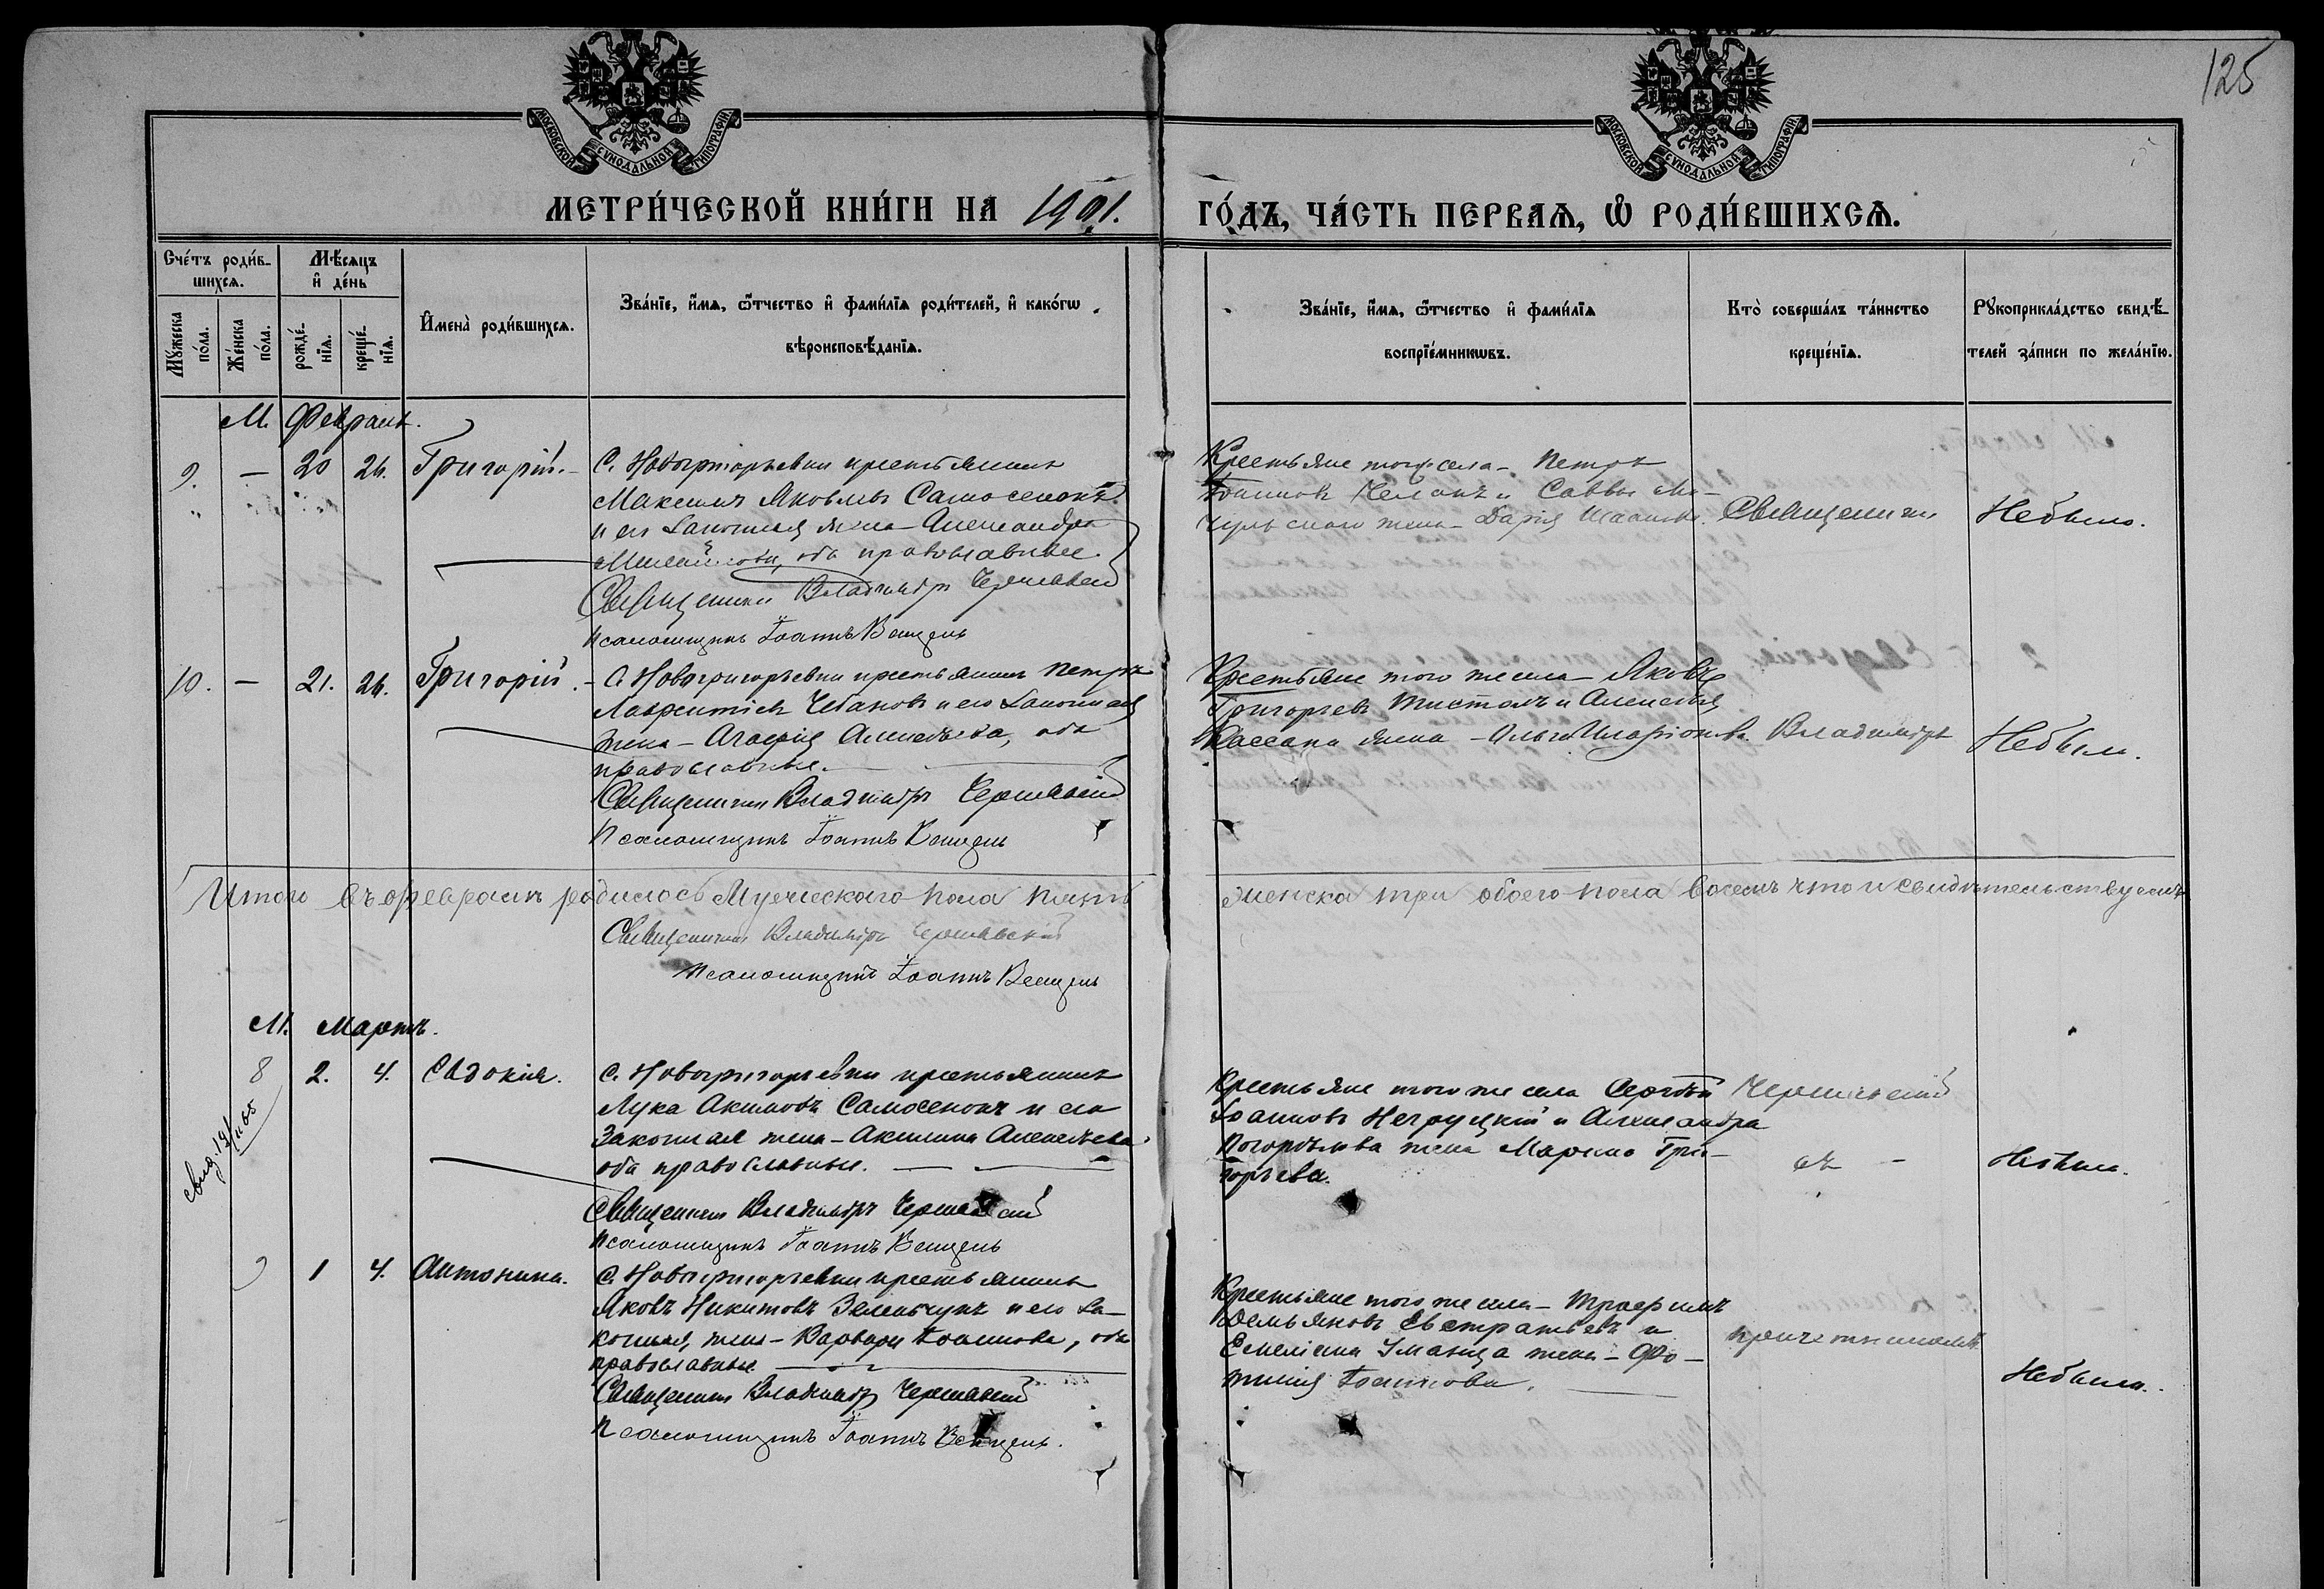 125
МОСКОВСКОЙ СѴНОДАЛЬНОЙ ТИПОГРАФІИ
МОСКОВСКОЙ СѴНОДАЛЬНОЙ ТИПОГРАФІИ
МЕТРИ́ЧЕСКОЙ КНИ́ГИ НА 1901.
ГО́ДЪ, ЧА́СТЬ ПЕРВАѦ, Ѽ РОДИ́ВШИХСѦ.
Сче́тъ роди́в-
шихсѧ.
Мѣ́сѧцъ
и҆ де́нь
Мꙋ́жеска
по́ла.
Же́нска
по́ла.
рожде́-
нїѧ.
креще́-
нїѧ.
И҆мена̀ роди́вшихсѧ.
Зва́нїе, и҆́мѧ, ѻ҆́тчество и҆ фами́лїѧ роди́телей, и҆ како́гѡ
вѣроисповѣ́данїѧ.
Зва́нїе, и҆́мѧ, ѻ҆́тчество и҆ фами́лїѧ
воспрїе́мникѡвъ.
Кто̀ соверша́лъ та́инство
креще́нїѧ.
Рꙋкоприкла́дство свидѣ́-
телей за́писи по жела́нїю.
М. Февраль.
9. — 20 26. Григорій. — С. Новогригорьевки крестьянинъ
Максимъ Яковлевъ Самосенокъ
и его законная жена — Александра
оба православные.
Священникъ Владиміръ Чернявскій
Псаломщикъ Іоаннъ Венцель
Крестьяне того села — Петръ
Іоанновъ и Саввы
жена — Дарія
Священникъ
Небыло.
10. — 21. 26. Григорій. — С. Новогригорьевки крестьянинъ Петръ
Лаврентіевъ Чебановъ и его законная
жена — Агафія Алексѣева, оба
православные.
Священникъ Владиміръ Чернявскій
Псаломщикъ Іоаннъ Венцель
Крестьяне того же села — Яковъ
Григорьевъ и Алексѣя
жена — Ольга Иларіонова
Владиміръ
Небыло.
Итого въ февралѣ родилось Мужескаго пола пять
женска три обоего пола восемь что и свидѣтельствуемъ
Священникъ Владиміръ Чернявскій
Псаломщикъ Іоаннъ Венцель
М. Мартъ.
8 2. 4. Евдокія. С. Новогригорьевки крестьянинъ
Лука Акимовъ Самосенокъ и его
законная жена — Акилина Алексѣева
оба православные.
Священникъ Владиміръ Чернявскій
Псаломщикъ Іоаннъ Венцель
Крестьяне того же села Сергѣй
Іоанновъ Негруцкій и Александра
Погорѣлова жена Марина Гри-
горьева.
Чернявскій
съ —
Небыло.
9 1 4. Антонина. С. Новогригорьевки крестьянинъ
Яковъ Никитовъ Зеленчукъ и его за-
конная жена — Варвара Іоаннова, оба
православные
Священникъ Владиміръ Чернявскій
Псаломщикъ Іоаннъ Венцель.
Крестьяне того же села — Трофимъ
Демьяновъ Евстратьевъ и
Емеліана Уманца жена — Фо-
тинія Іоаннова.
причетникомъ
Небыло.